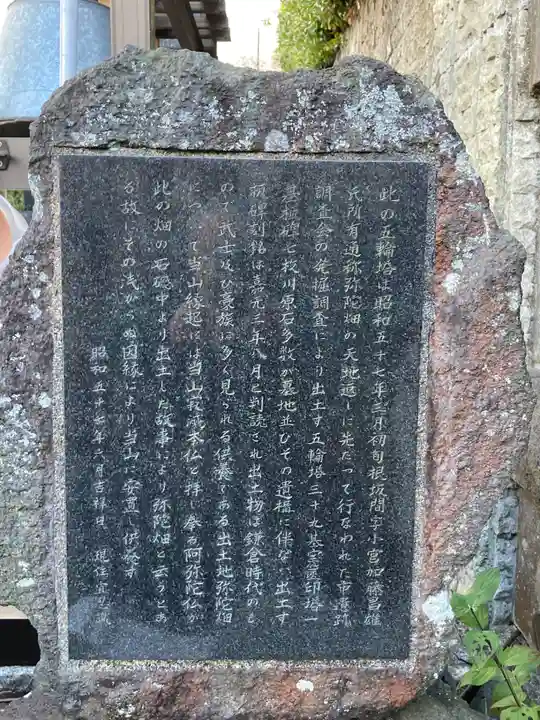 此の五輪塔は昭和五十七年三月初旬根坂間字小宮加藤昌雄
氏所有通称弥陀畑の天地返しに先だって行なわれた市遺跡
調査会の発掘調査により出土す五輪塔三十九基宝篋印塔一
基板碑七枚川原石多数が墓地並びその遺構に伴ない出土す
板碑刻銘は嘉元三年八月と判読され出土物は鎌倉時代のも
ので武士及び豪族に多く見られる供養である出土地弥陀畑
について当山縁起には当山
本仏と拝し奉る阿弥陀仏が
此の畑の石礎中より出土した故事により弥陀畑と云うとあ
る故にその浅からぬ因縁により当山に安置し供養す
昭和五十七年六月吉祥日 現住